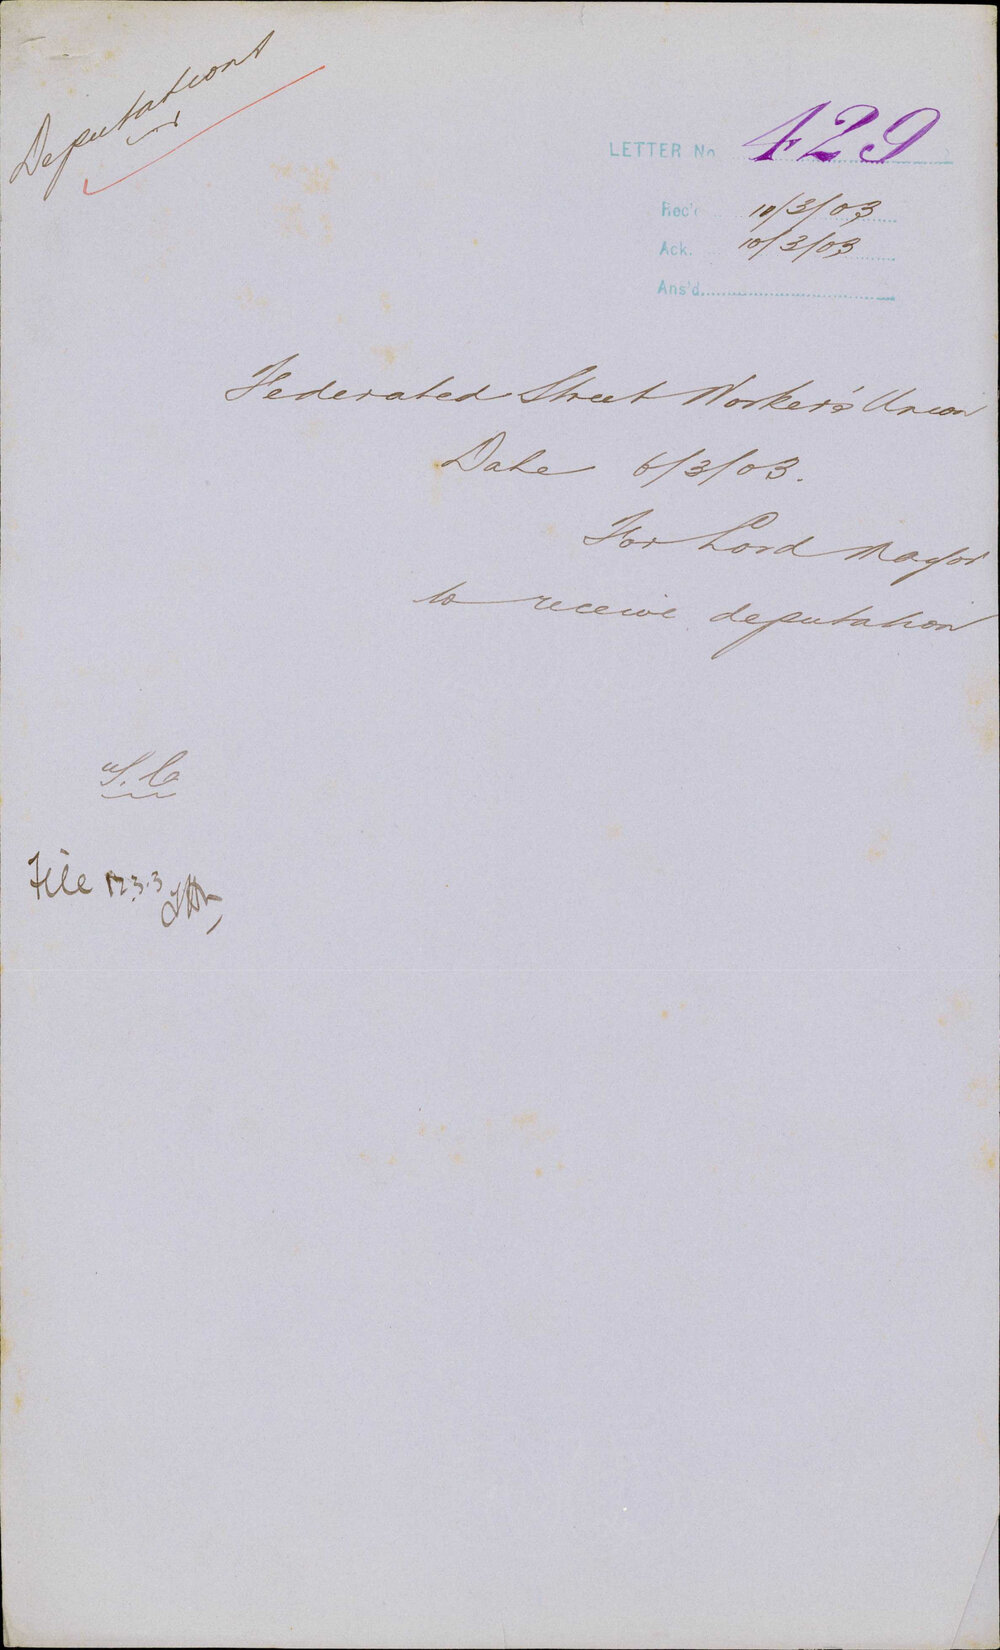 Deputations
LETTER No 429
Rec'd 10/3/03
Ack. 10/3/03
Ans'd
Federated Street Workers' Union
Date 6/3/03.
For Lord Mayor
to receive deputation
File 12.3.3